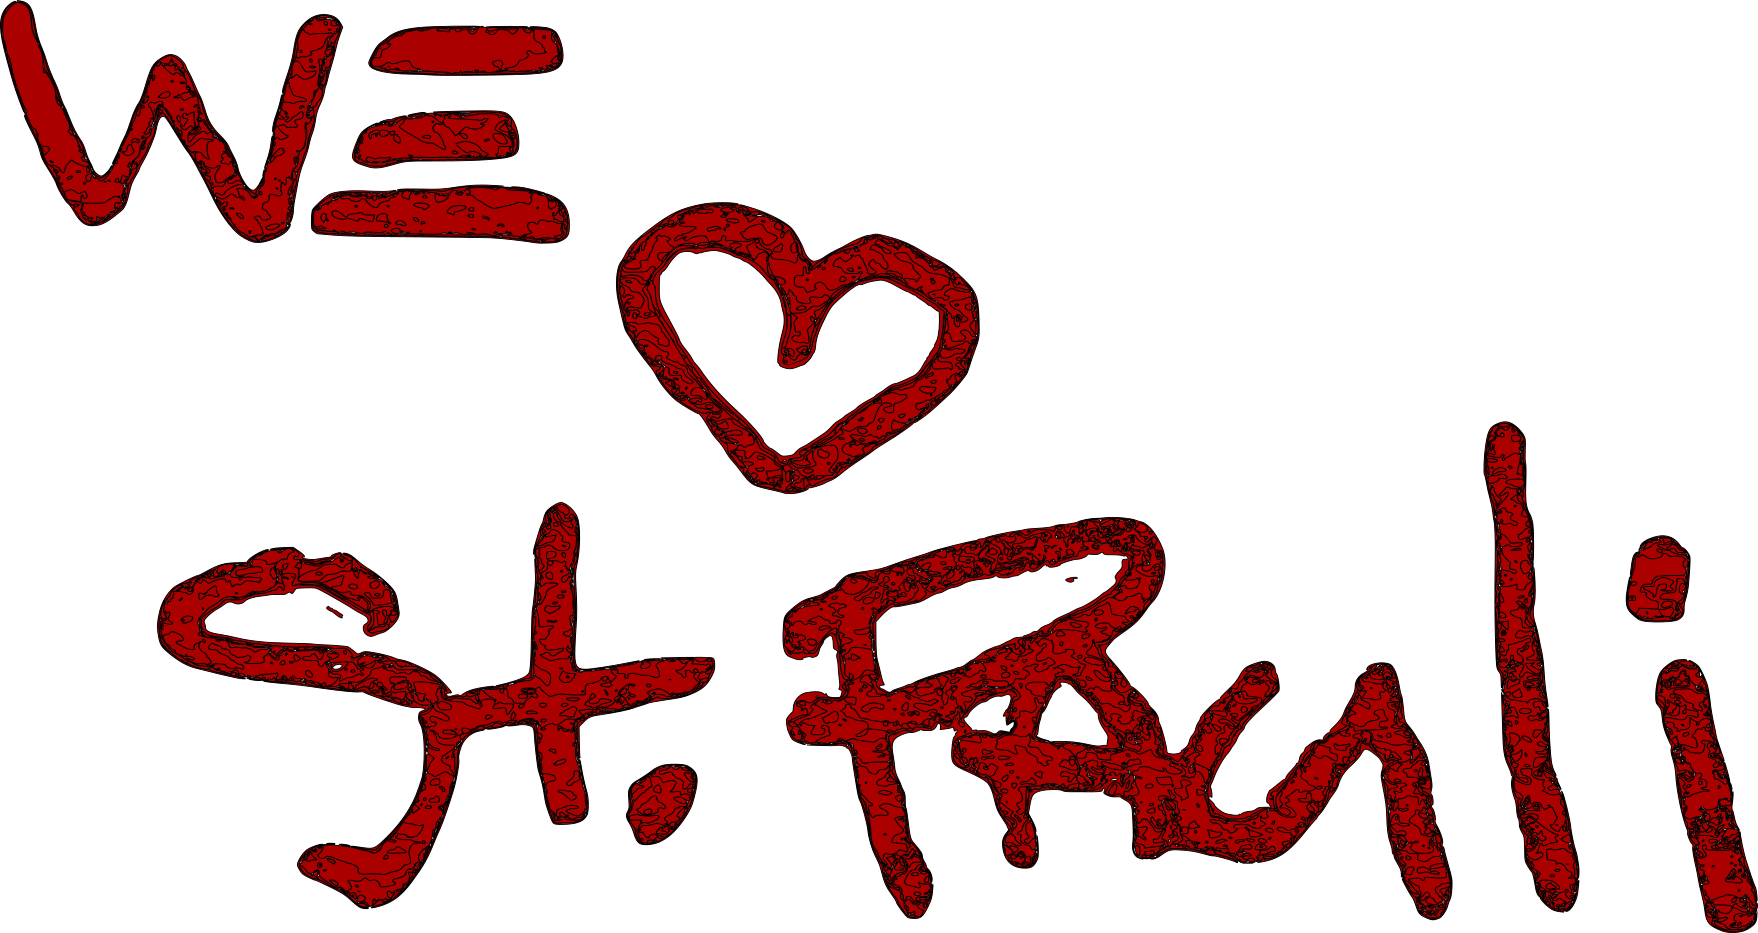 WE
♥
St. Pauli